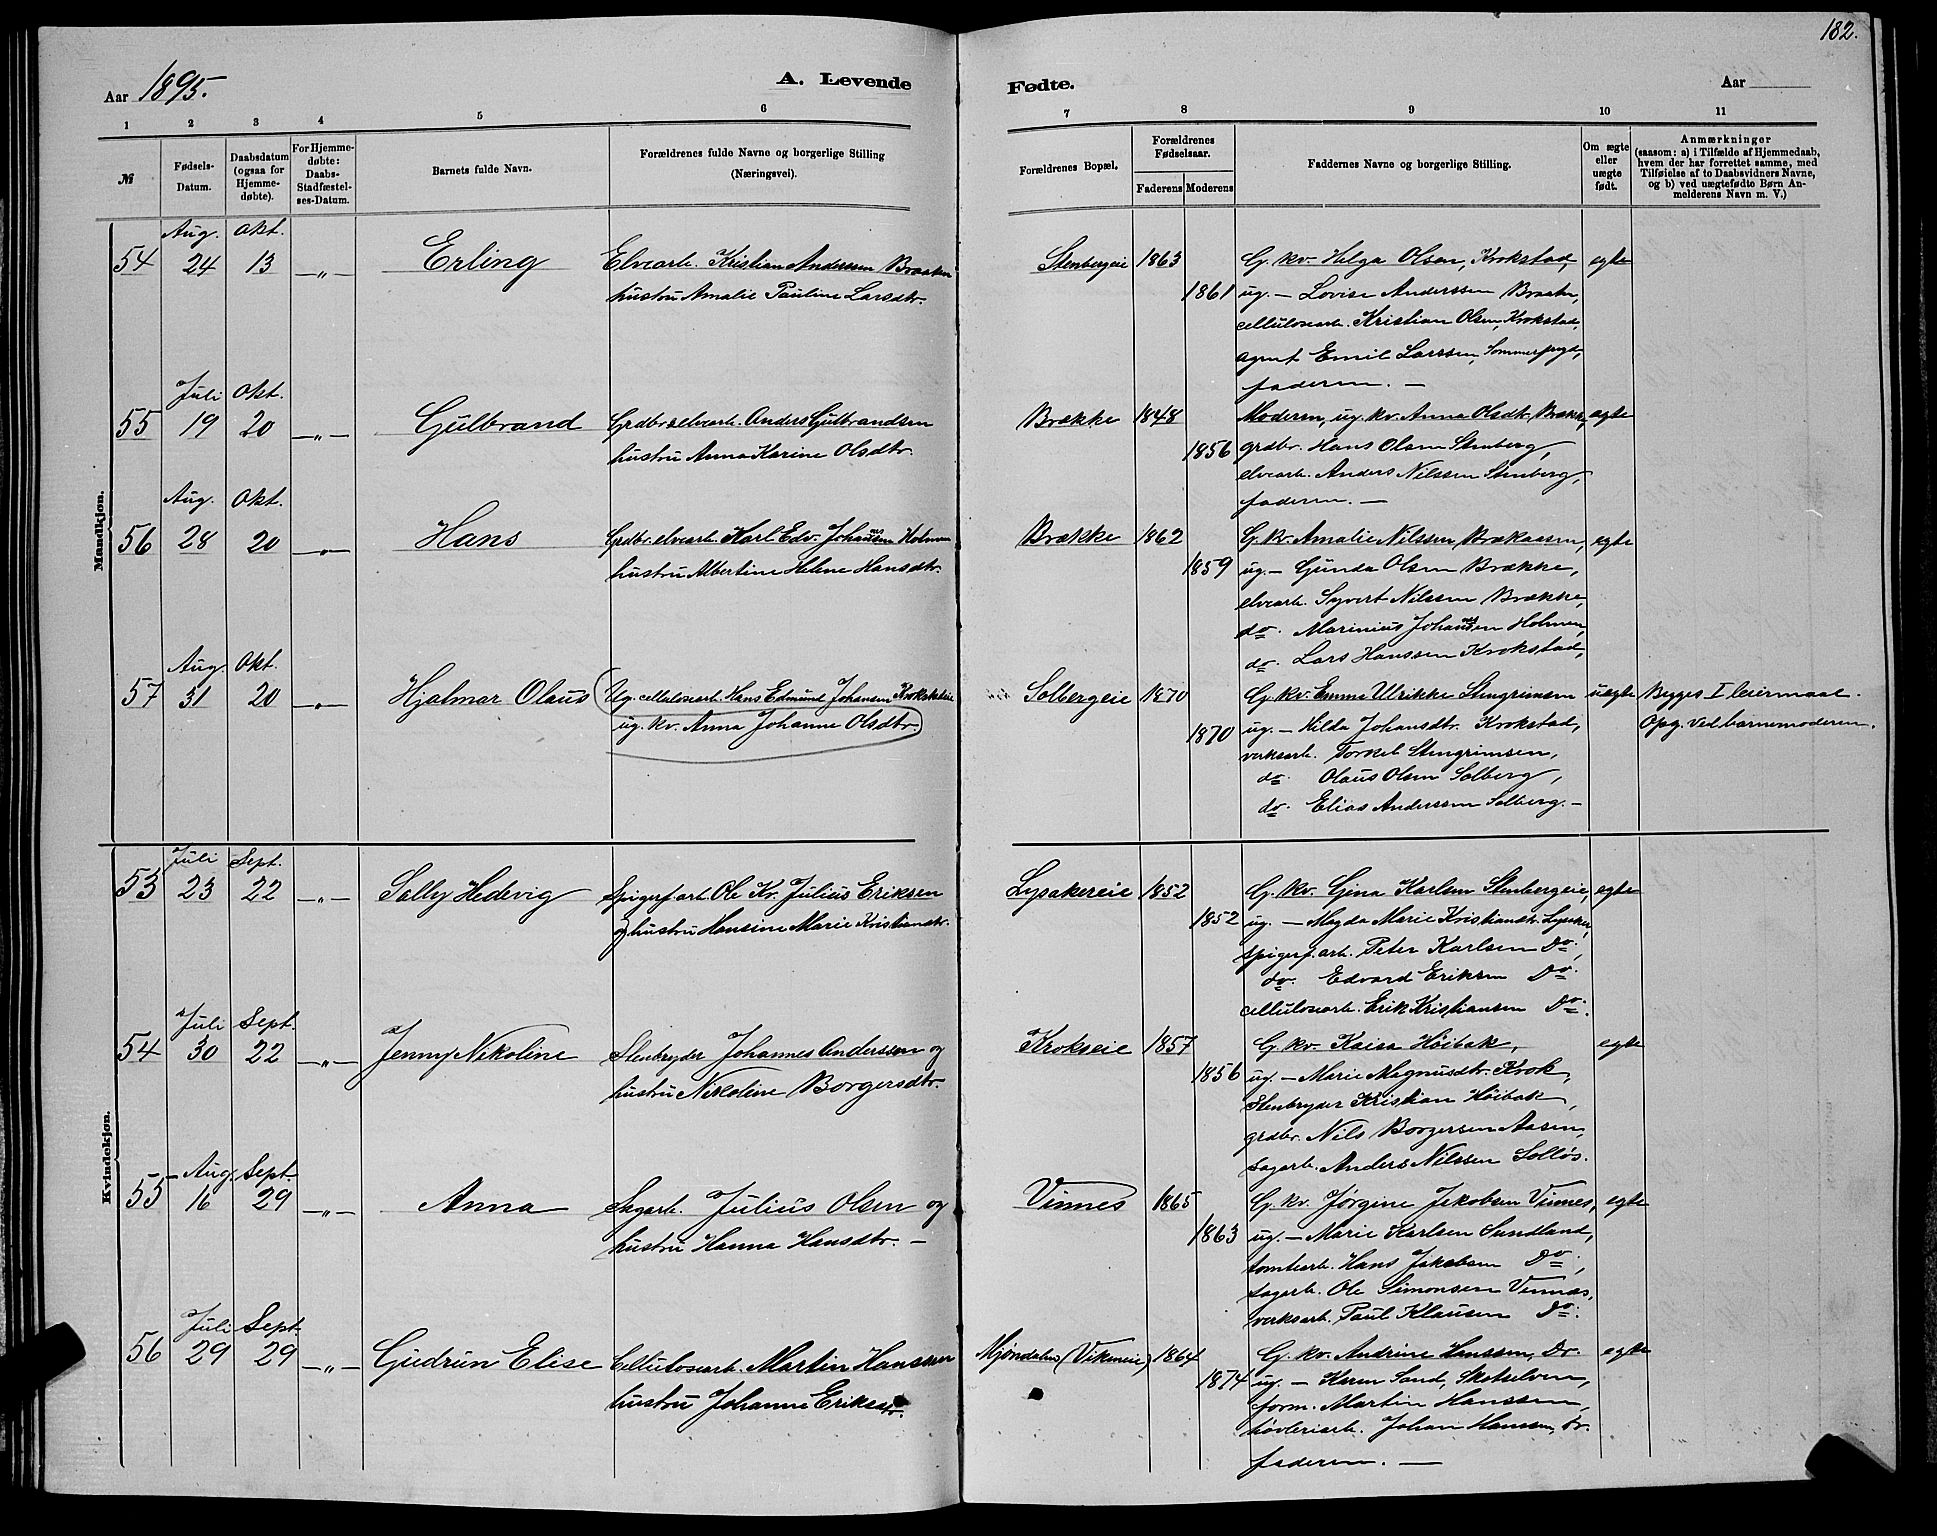 182.
Aar 1895.
A. Levende Fødte.
Aar
1 2 3 4 5 6 7 8 9 10 11
№
Fødsels-Datum.
Daabsdatum (ogsaa for Hjemme-døbte).
For Hjemme-døbte: Daabs-Stadfæstel-ses-Datum.
Barnets fulde Navn.
Forældrenes fulde Navne og borgerlige Stilling (Næringsvei).
Forældrenes Bopæl.
Forældrenes Fødselsaar.
Faderens Moderens
Faddernes Navne og borgerlige Stilling.
Om ægte eller uægte født.
Anmærkninger
(saasom: a) i Tilfælde af Hjemmedaab,
hvem der har forrettet samme, med
Tilføielse af to Daabsvidners Navne,
og b) ved uægtefødte Børn An-
melderens Navn m. V.)
Mandkjøn.
Aug. Okt.
54 24 13 —„— Erling Elvearb. Kristian Anderssen Braaten
hustru Amalie Pauline Larsdtr.
Stenbergeie 1863 1861
G. kv. Helga Olsen, Krokstad, egte
ug. — Lovise Anderssen Braaten,
cellulosearb. Kristian Olsen, Krokstad,
agent Emil Larssen, Sommerfryd,
faderen. —
Juli Okt.
55 19 20 —„— Gulbrand Grdbr. elvearb. Anders Gulbrandsen
hustru Anna Karine Olsdtr.
Brække 1848 1856
Moderen, ug. kv. Anna Olsdtr. Brække, egte
grdbr. Hans Olsen Stenberg,
elvearb. Anders Nilssen Stenberg,
faderen. —
Aug. Okt.
56 28 20 —„— Hans Grdbr. elvearb. Karl Edv. Johansen Holmen
hustru Albertine Helene Hansdtr.
Brække 1862 1859
G. kv. Amalie Nilssen, Brækaasen, egte
ug. — Gunda Olsen Brække,
elvearb. Syvert Nilssen Brække,
do. Marinius Johansen Holmen,
do. Lars Hanssen Krokstad,
Aug. Okt.
57 31 20 —„— Hjalmar Olaus Ug. cellulosearb. Hans Edmund Johansen Krokstadeie
ug. kv. Anna Johanne Olsdtr.
Solbergeie 1870 1870
G. kv. Emma Ulrikke Stengrimsen uegte Begges I leiermaal.
ug. — Hilda Johansdtr. Krokstad, Opg. ved barnemoderen.
verksarb. Torkel Stengrimsen,
do. Olaus Olsen Solberg,
do. Elias Anderssen Solberg. —
Kvindekjøn.
Juli Sept.
53 23 22 —„— Solley Hedevig Spigerf. arb. Ole Kr. Julius Eriksen
og hustru Hansine Marie Kristiansdtr.
Lysakereie 1852 1852
G. kv. Gina Karlsen Stenbergeie, egte
ug. — Magda Marie Kristiansdtr. Lysaker,
spigerf. arb. Peter Karlsen Do.,
do. Edvard Eriksen Do.
cellulosearb. Erik Kristiansen Do.
Juli Sept.
54 30 22 —„— Jenny Nikoline Stenbryder Johannes Anderssen og
hustru Nikoline Borgersdtr.
Krokseie 1857 1856
G. kv. Kaisa Höibak, egte
ug. — Marie Magnusdtr. Krok,
Stenbryder Kristian Höibak,
grdbr. Nils Borgersen Aasen,
sagarb. Anders Nilssen Solløs.
Aug. Sept.
55 16 29 —„— Anna Sagarb. Julius Olsen og
hustru Hanna Hansdtr. —
Vinnes 1865 1863
G. kv. Jørgine Jakobsen Vinnes, egte
ug. — Marie Karlsen Sundland,
tomtearb. Hans Jakobsen Do.,
sagarb. Ole Simonsen Vinnes,
verksarb. Paul Klausen Do.
Juli Sept.
56 29 29 —„— Gudrun Elise Cellulosearb. Martin Hanssen
hustru Johanne Eriksdtr.
Mjøndalen (Vikeneie) 1864 1874
G. kv. Andrine Hanssen, Do. egte
ug. — Karen Sand, Skotselven,
form. Martin Hanssen,
høvleriarb. Johan Hanssen, Do.
faderen. —